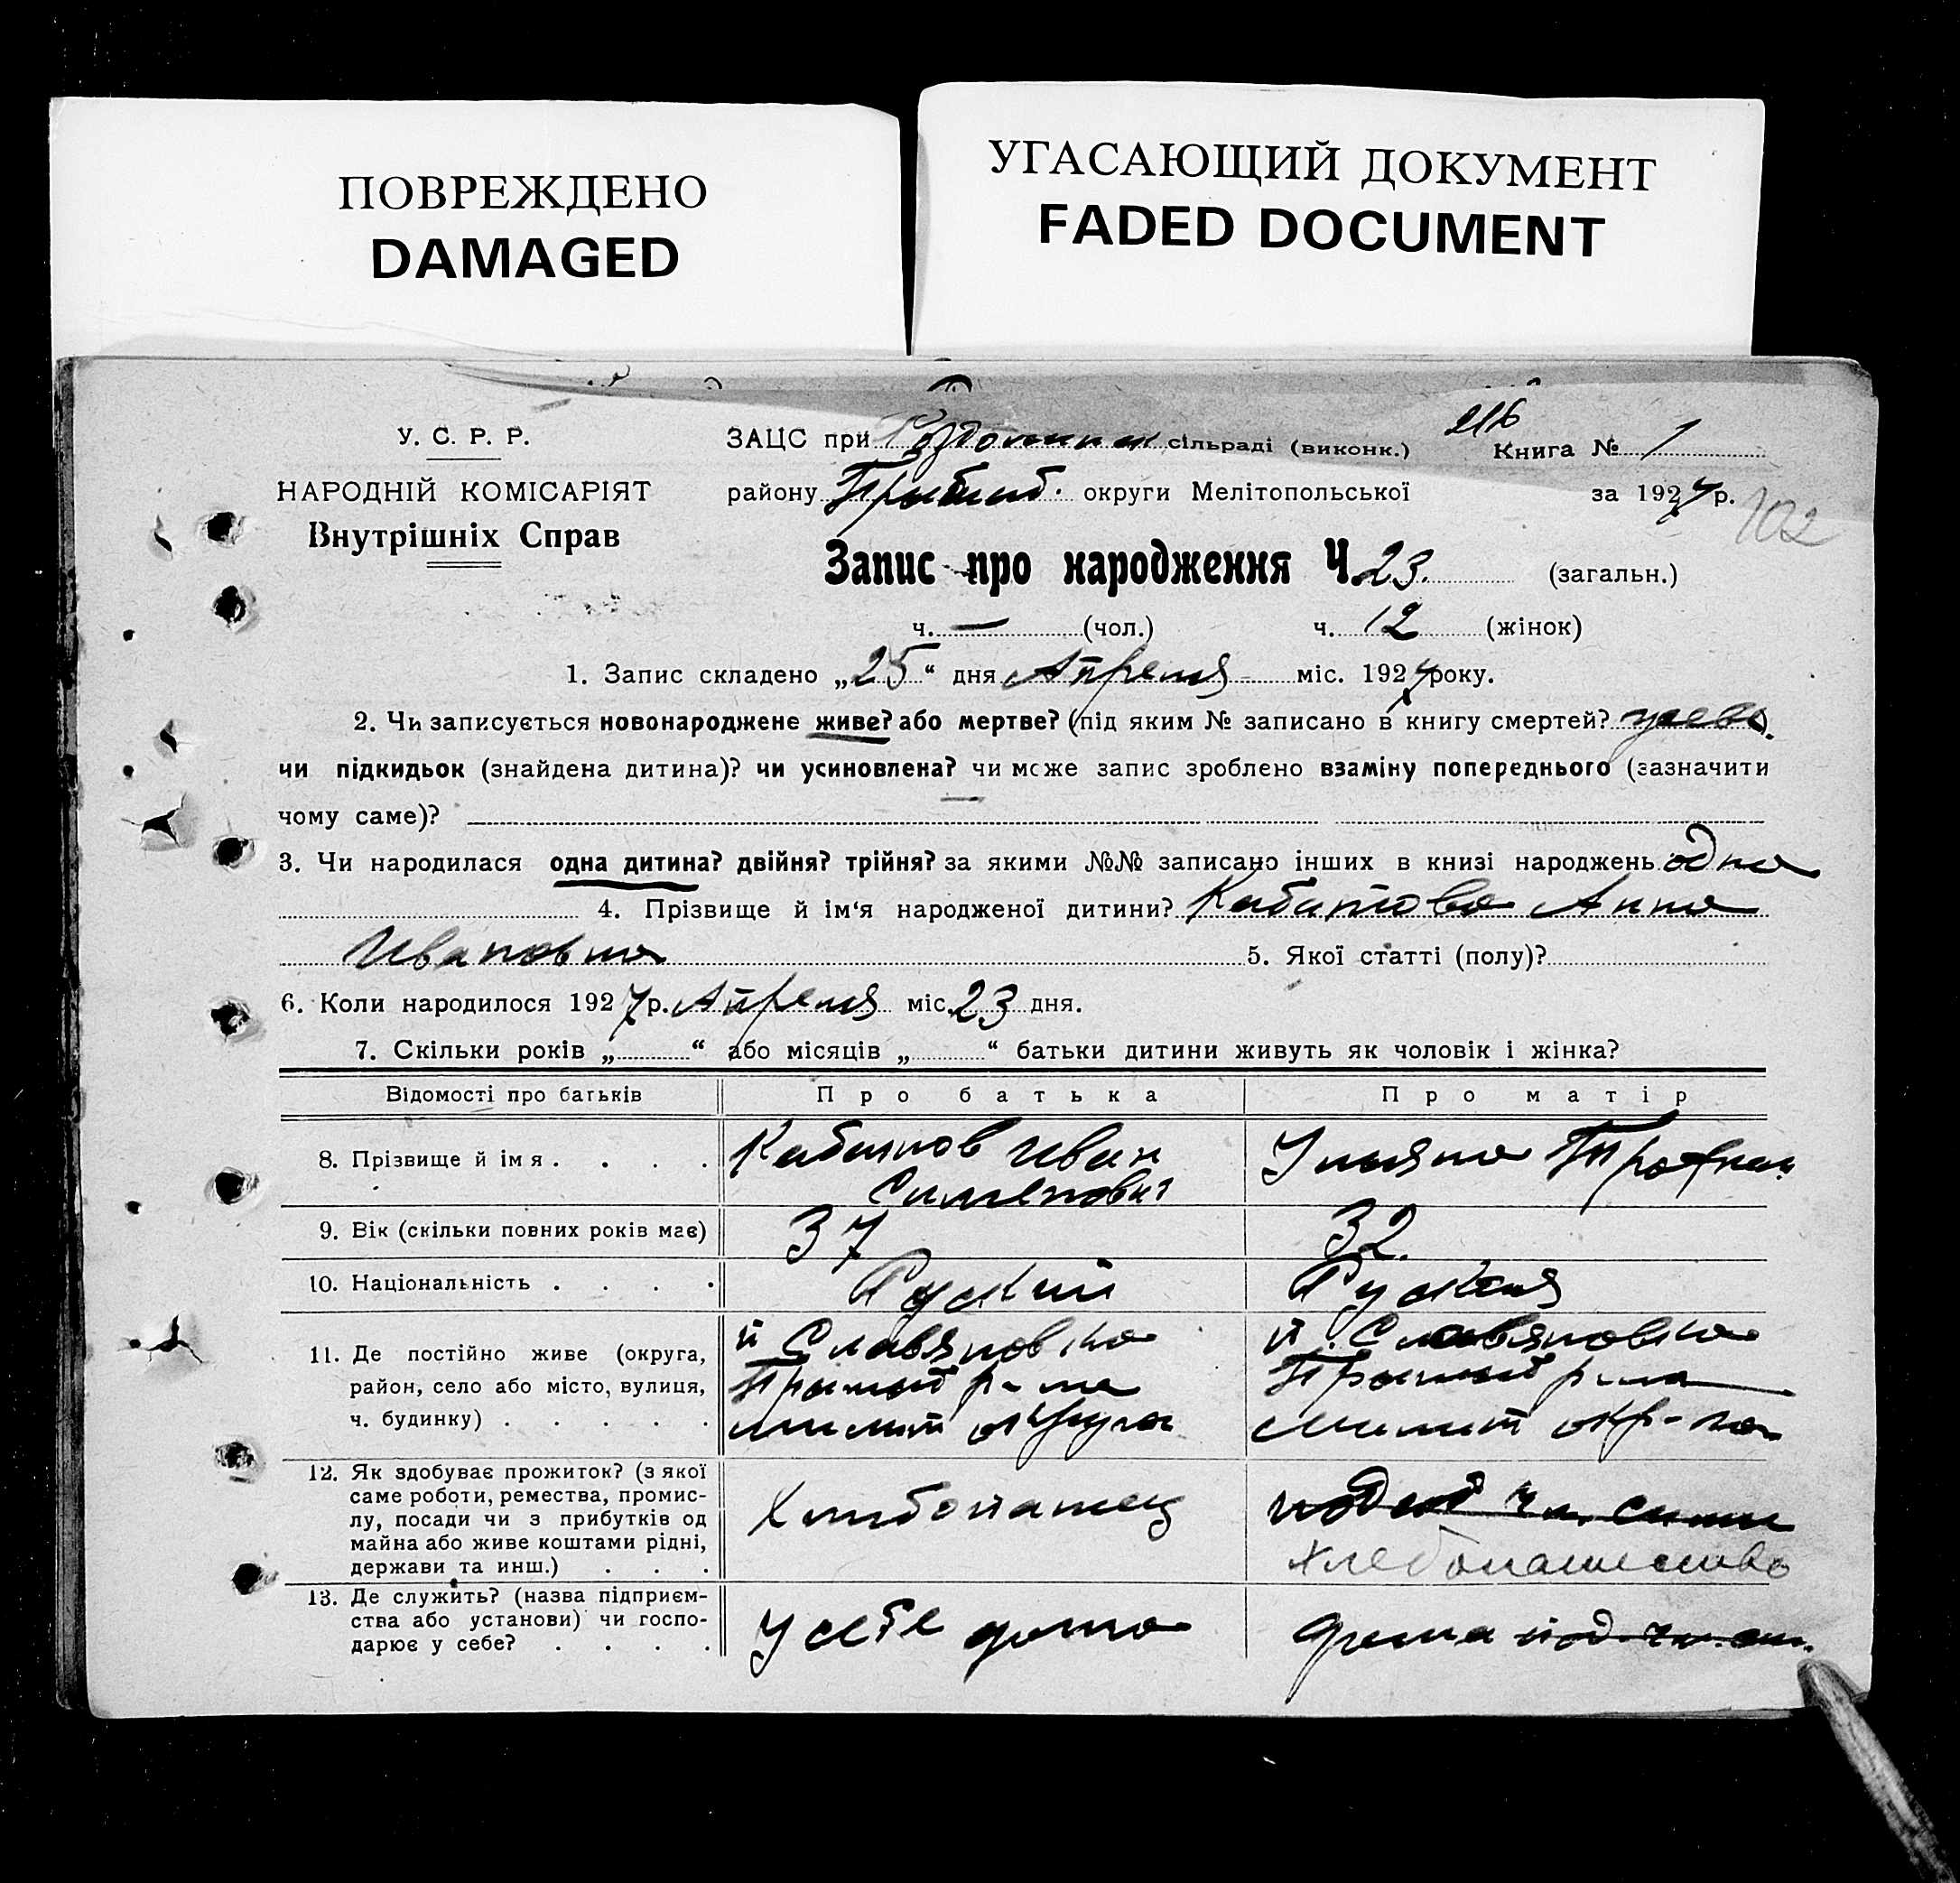 ПОВРЕЖДЕНО
DAMAGED
УГАСАЮЩИЙ ДОКУМЕНТ
FADED DOCUMENT
У. С. Р. Р.
НАРОДНІЙ КОМІСАРІЯТ
Внутрішніх Справ
216
ЗАЦС при сільраді (виконк.) Книга № 1
району округи Мелітопольської за 1927 р.
102
Запис про народження Ч. 23. (загальн.)
ч. — (чол.) ч. 12 (жінок)
1. Запис складено „25“ дня Апреля міс. 1927 року.
2. Чи записується новонароджене живе? або мертве? (під яким № записано в книгу смертей?
чи підкидьок (знайдена дитина)? чи усиновлена? чи може запис зроблено взаміну попереднього (зазначити
чому саме)?
3. Чи народилася одна дитина? двійня? трійня? за якими №№ записано інших в книзі народжень одна
4. Прізвище й ім‘я народженої дитини? Анна
Ивановна 5. Якої статті (полу)?
6. Коли народилося 1927 р. Апреля міс. 23 дня.
7. Скільки років „ “ або місяців „ “ батьки дитини живуть як чоловік і жінка?
Відомості про батьків Про батька Про матір
8. Прізвище й імя . . . . Иван Ульяна
9. Вік (скільки повних років має) 37 32.
10. Національність . . . . Руский Руская
11. Де постійно живе (округа, п Славяновка п. Славяновка
район, село або місто, вулиця, р-на р-на
ч. будинку) . . . . . округа окр-га
12. Як здобуває прожиток? (з якої
саме роботи, ремества, промис-
лу, посади чи з прибутків од
майна або живе коштами рідні,
держави та инш.) . . . Хлибопашец хлебопашество
13. Де служить? (назва підприєм-
ства або установи) чи госпо-
дарює у себе? . . . . У себе дома дома